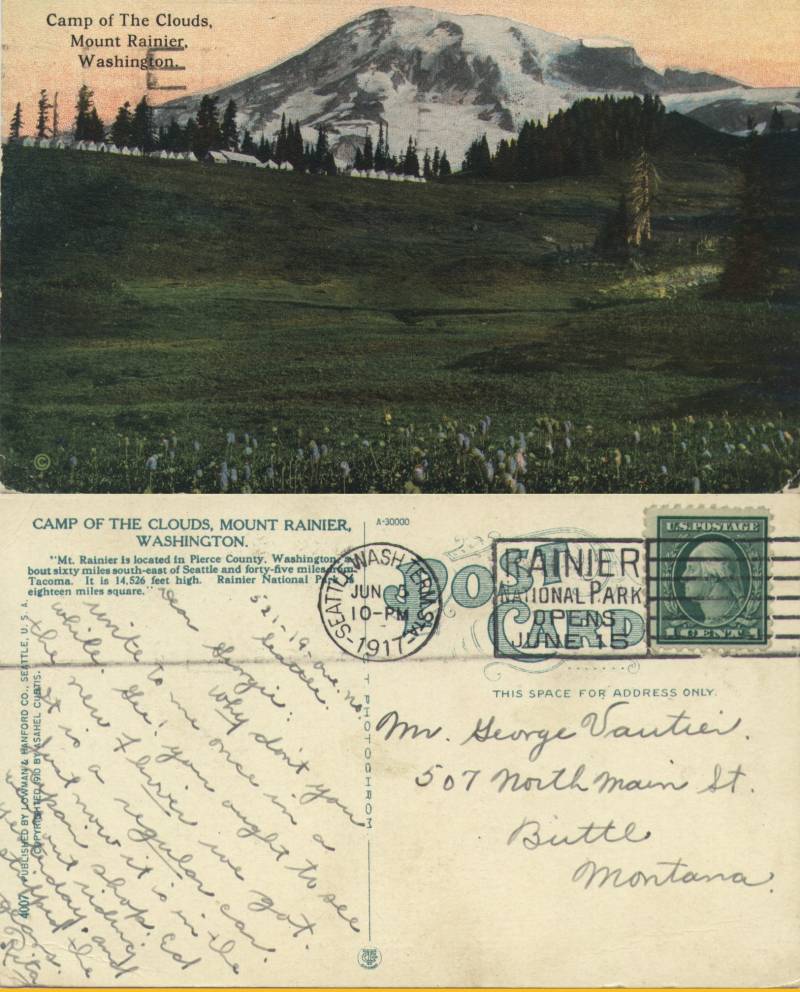 Camp of The Clouds,
Mount Rainier,
Washington.
©
CAMP OF THE CLOUDS, MOUNT RAINIER,
WASHINGTON.
"Mt. Rainier is located in Pierce County, Washington, a-
bout sixty miles south-east of Seattle and forty-five miles from
Tacoma. It is 14,526 feet high. Rainier National Park is
eighteen miles square."
A-30000
POST
CARD
SEATTLE, WASH. TERM. STA.
JUN
10-PM
1917
RAINIER
NATIONAL PARK
OPENS
JUNE 15
U.S. POSTAGE
1 CENT 1
THIS SPACE FOR ADDRESS ONLY.
521-19-ave. no.
Seattle.
Dear Georgie:
Why don't you
write to me once in a
while. Gee! you ought to see
the new Flivver we got.
It is a regular car.
but now it is in the
repair shop. Ed
went out riding
yesterday and
stripped the
gears.
Rita
Mr. George Vautier.
507 North Main St.
Butte
Montana.
4007 PUBLISHED BY LOWMAN & HANFORD CO., SEATTLE, U. S. A.
COPYRIGHTED 1910 BY ASAHEL CURTIS.
PHOTOCHROM